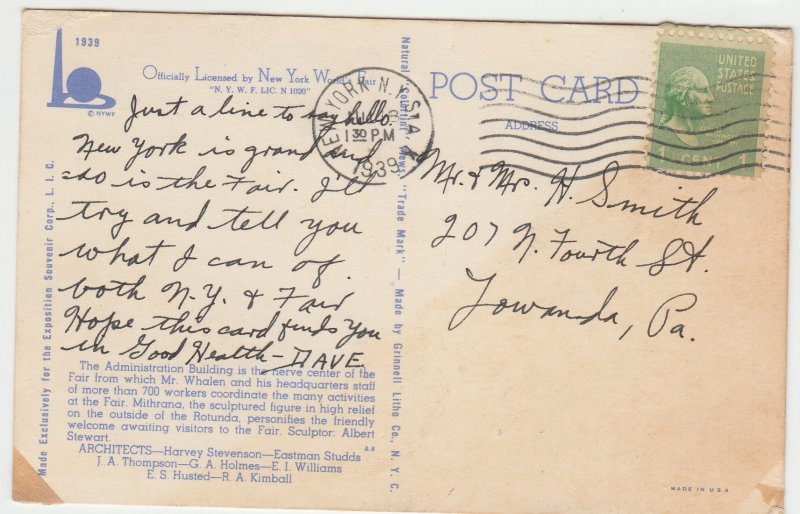 1939
© NYWF
Officially Licensed by New York World's Fair
"N. Y. W. F. LIC. N 1020"
Just a line to say hello.
New York is grand and
so is the Fair. I'll
try and tell you
what I can of
both N.Y. & Fair
Hope this card finds you
in Good Health — DAVE.
The Administration Building is the nerve center of the
Fair from which Mr. Whalen and his headquarters staff
of more than 700 workers coordinate the many activities
at the Fair. Mithrana, the sculptured figure in high relief
on the outside of the Rotunda, personifies the friendly
welcome awaiting visitors to the Fair. Sculptor: Albert
Stewart.
A-8
ARCHITECTS—Harvey Stevenson—Eastman Studds
J. A. Thompson—G. A. Holmes—E. I. Williams
E. S. Husted—R. A. Kimball
Made Exclusively for the Exposition Souvenir Corp., L. I. C.
Natural "Colortint" Views, "Trade Mark" — Made by Grinnell Litho Co., N. Y. C.
NEW YORK N.Y. STA.
1 30 PM
1939
POST CARD
ADDRESS
UNITED
STATES
POSTAGE
WASHINGTON
1 CENT 1
Mr. & Mrs. H. Smith
207 N. Fourth St.
Towanda, Pa.
MADE IN U S A